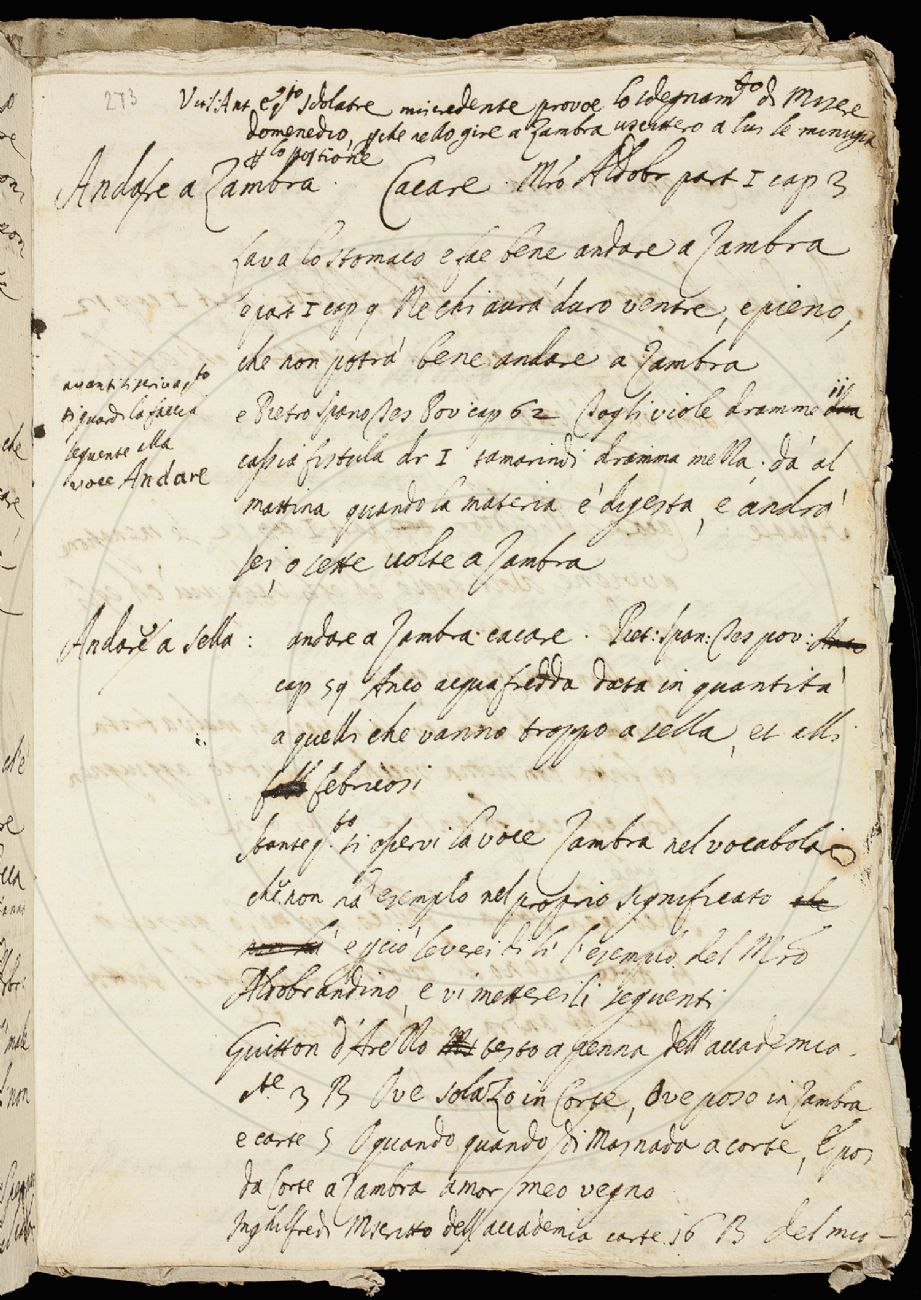 273
Vit: Ant e q.to Idolatre miscredente provoe lo sdegnam.to di Misere
domenedio, che nello gire a Zambra uscittero a lui le minugia
Andare a Zambra. Cacare. Mro Aldobr part I cap 3
lava lo stomaco e fae bene andare a Zambra
e part I cap 9 Ne chi avrà duro ventre, e pieno,
che non potrà bene andare a Zambra
e Pietro Spano Tes Pov cap 62 Togli viole dramme iij
cassia fistula dr I tamarindi dramma mezza. dà al
mattina quando la materia é digesta, é andrò
sei, o sette volte a Zambra
avanti si scriva q.to
si guardi la faccia
seguente alla
voce Andare
Andare a sella: andare a Zambra cacare. Piet: Span: Tes pov:
cap 59 Anco acqua fredda data in quantità
a quelli che vanno troppo a sella, et alli
febricosi
Stante q.to si osservi la voce Zambra nel vocabolario
che non hà esempio nel proprio significato
e però leverei di lì l'esempio del Mro
Aldobrandino, e vi metterei li seguenti
Guitton d'Arezzo testo a penna dell'accademia.
c.te 3 B Ove solazo in Corte, Ove poso in Zambra
e carte 5 O quando quando di Masnada a corte, E poi
da Corte a Zambra amor meo vegno
Inghilfredi Mscritto dell'accademia carte 16 B del mio-